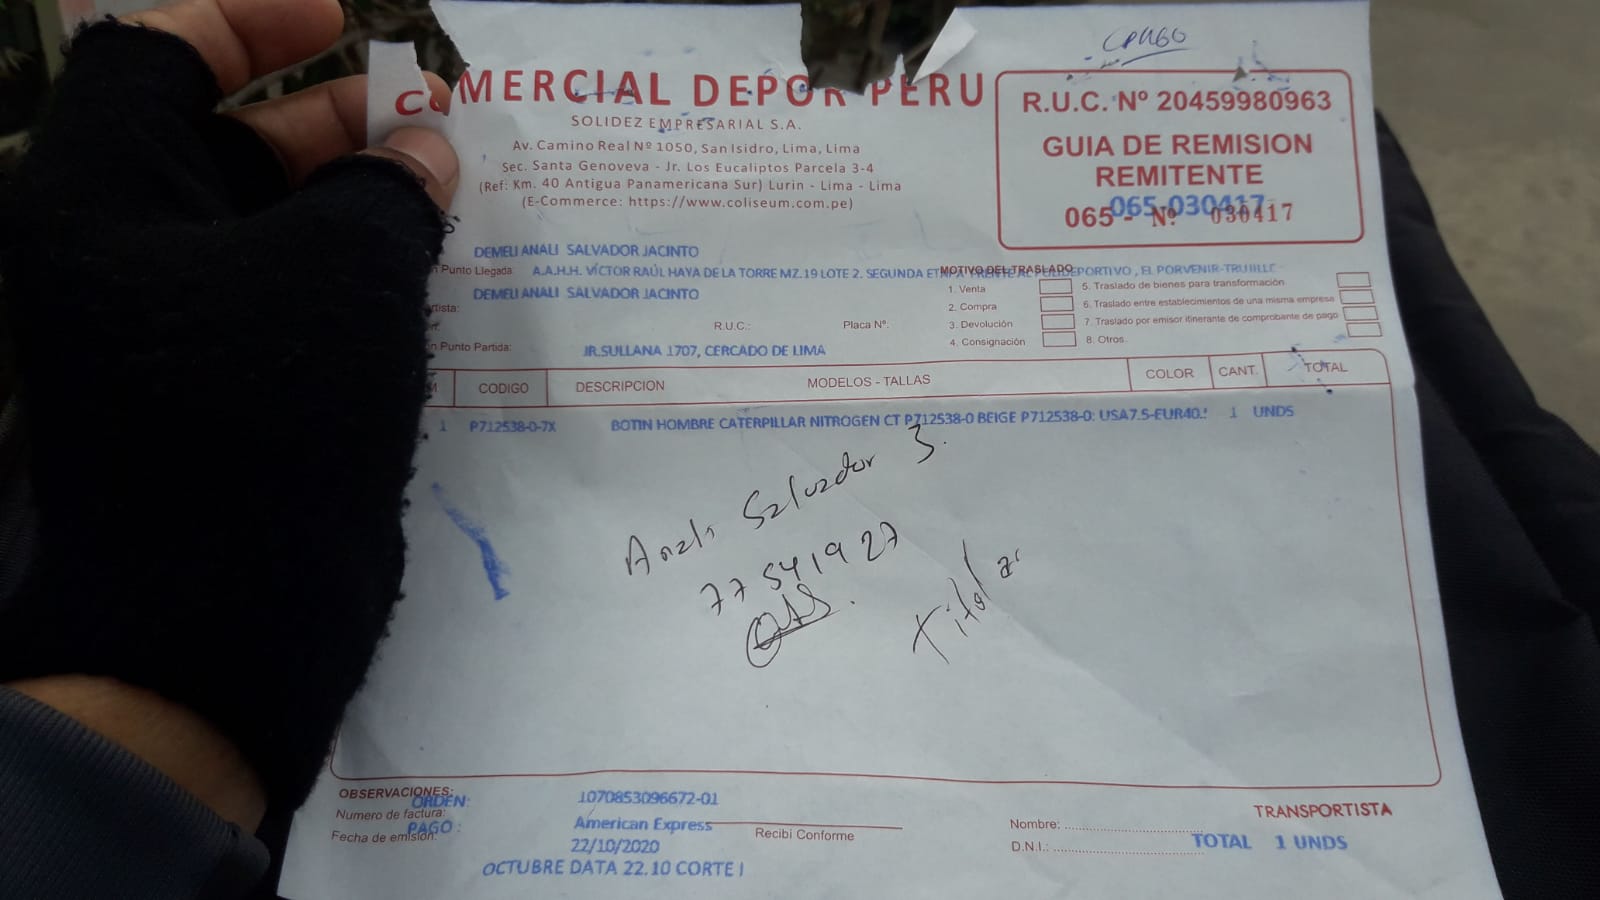 COMERCIAL DEPOR PERU
SOLIDEZ EMPRESARIAL S.A.
Av. Camino Real Nº 1050, San Isidro, Lima, Lima
Sec. Santa Genoveva - Jr. Los Eucaliptos Parcela 3-4
(Ref: Km. 40 Antigua Panamericana Sur) Lurin - Lima - Lima
(E-Commerce: https://www.coliseum.com.pe)
R.U.C. Nº 20459980963
GUIA DE REMISION
REMITENTE
065 - Nº 030417
065-030417
DEMELI ANALI SALVADOR JACINTO
Punto Llegada: A.A.H.H. VÍCTOR RAÚL HAYA DE LA TORRE MZ.19 LOTE 2. SEGUNDA ETAPA FRENTE AL POLIDEPORTIVO , EL PORVENIR-TRUJILLO
DEMELI ANALI SALVADOR JACINTO
R.U.C.: Placa Nº:
Punto Partida: JR.SULLANA 1707, CERCADO DE LIMA
MOTIVO DEL TRASLADO
1. Venta
2. Compra
3. Devolución
4. Consignación
5. Traslado de bienes para transformación
6. Traslado entre establecimientos de una misma empresa
7. Traslado por emisor itinerante de comprobante de pago
8. Otros
CODIGO DESCRIPCION MODELOS - TALLAS COLOR CANT. TOTAL
1 P712538-0-7X BOTIN HOMBRE CATERPILLAR NITROGEN CT P712538-0 BEIGE P712538-0: USA7.5-EUR40.5 1 UNDS
Anali Salvador J.
77541927
Titular
OBSERVACIONES:
ORDEN: 1070853096672-01
Numero de factura:
PAGO : American Express
Fecha de emisión: 22/10/2020
OCTUBRE DATA 22.10 CORTE I
Recibí Conforme
TRANSPORTISTA
Nombre:
D.N.I.:
TOTAL 1 UNDS